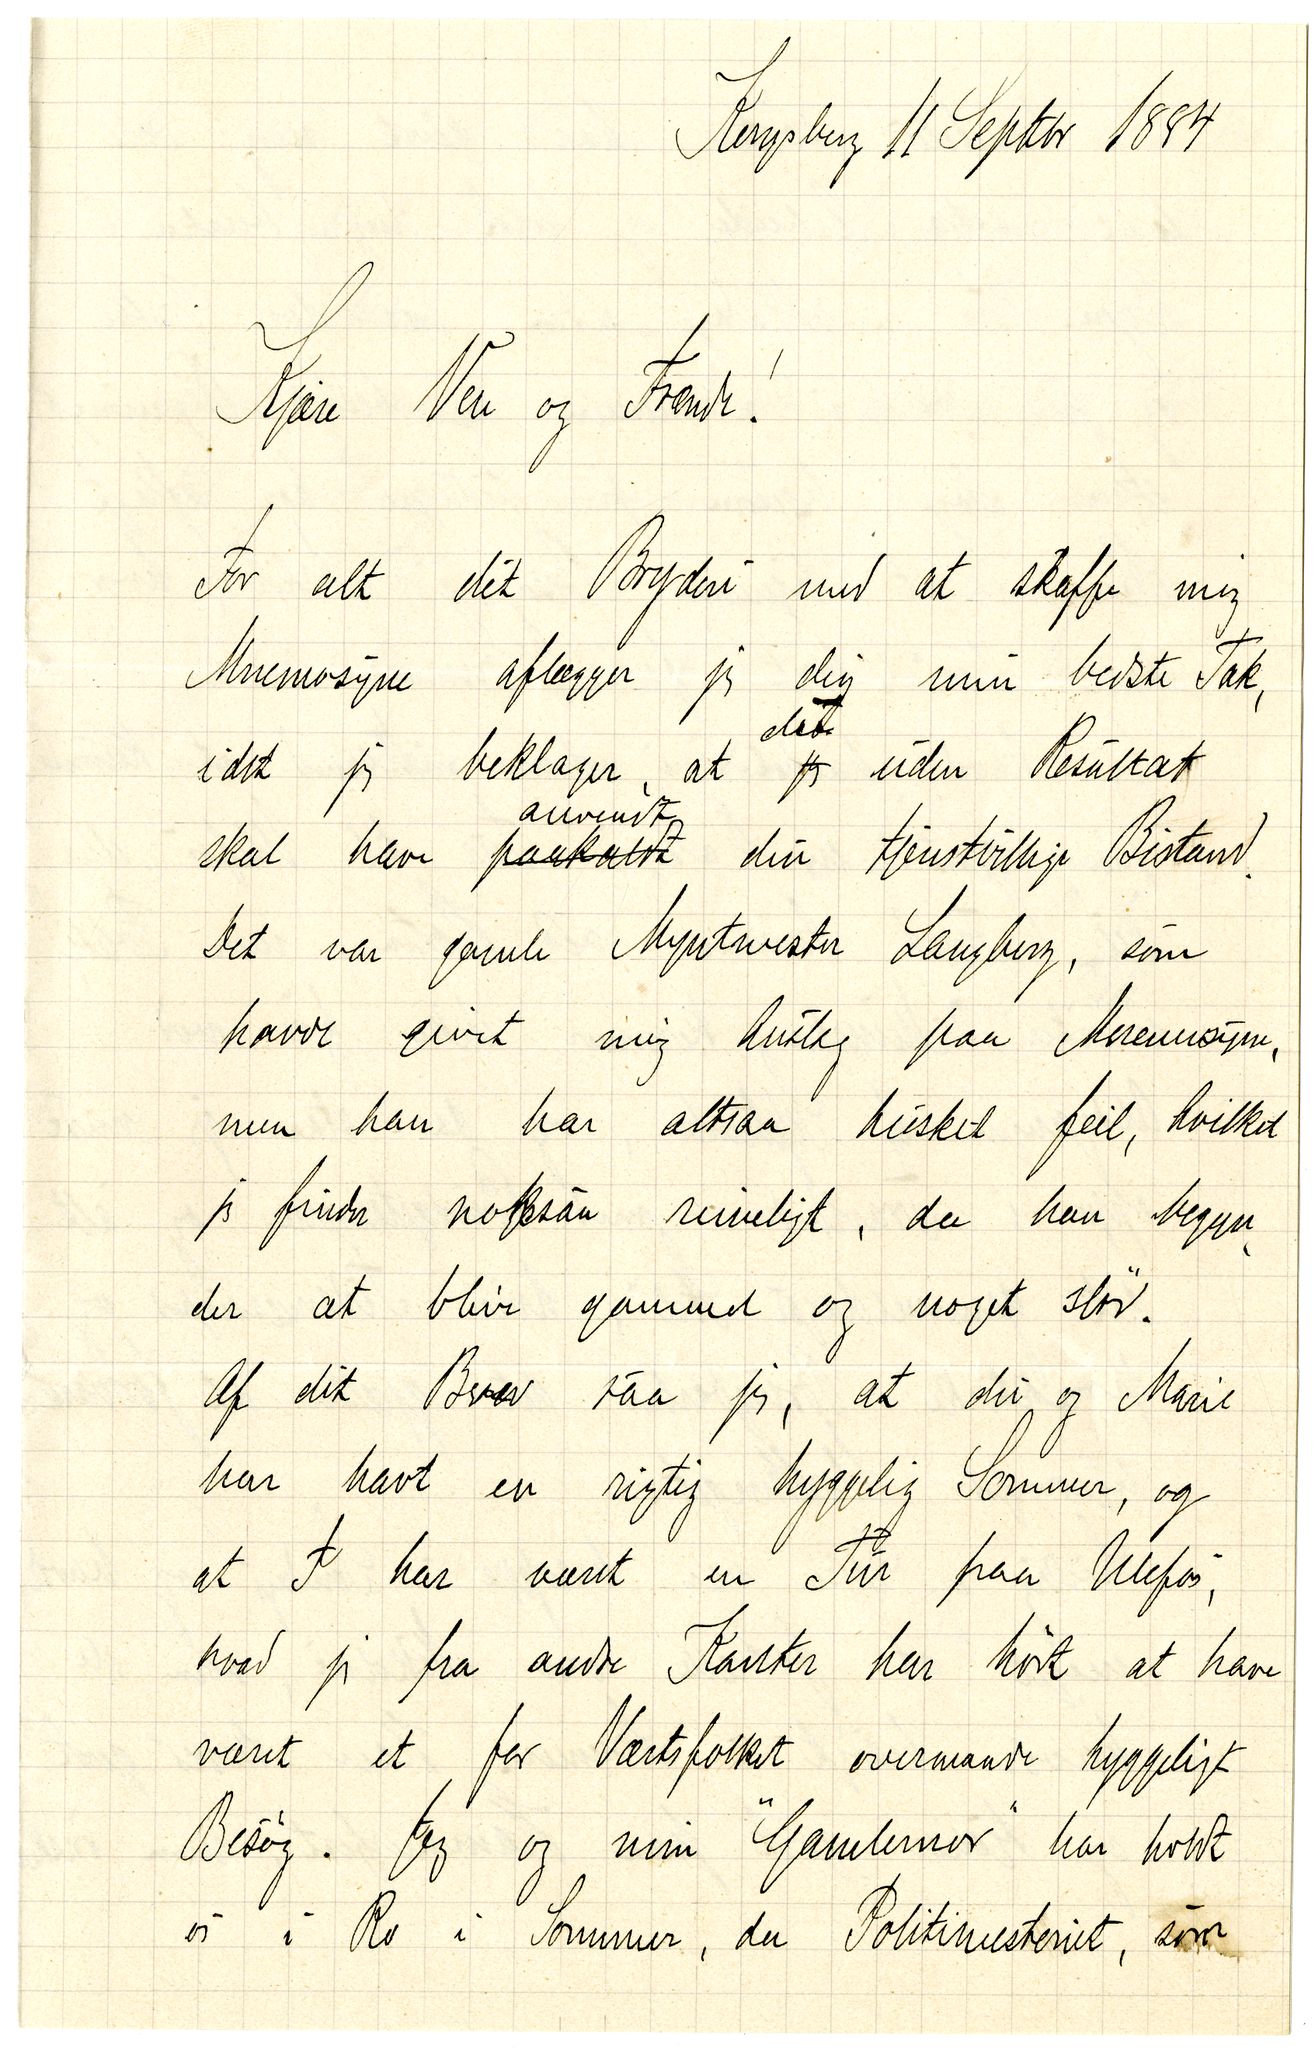 Kongsberg 11 Septbr 1884
Kjære Ven og Frænde!
For alt dit Bryderi med at skaffe mig
Mnemosyne aflægger jeg dig min bedste Tak,
idet jeg beklager, at jeg uden Resultat
det
skal have paakaldt din tjenstvillige Bistand.
anvendt
Det var gamle Myntmester Langberg, som
havde givet mig Anslag paa Mnemosyne,
men han har altsaa husket feil, hvilket
jeg finder noksaa rimeligt, da han begyn,
der at blive gammel og noget sløv.
Af dit Brev saa jeg, at du og Marie
har havt en rigtig hyggelig Sommer, og
at I har været en Tur paa Ulefos,
hvad jeg fra andre Kanter har hørt at have
været et for Værtsfolket overmaade hyggeligt
Besøg. Jeg og min "Gamlemor" har holdt
os i Ro i Sommer, da Politimesteriet, som